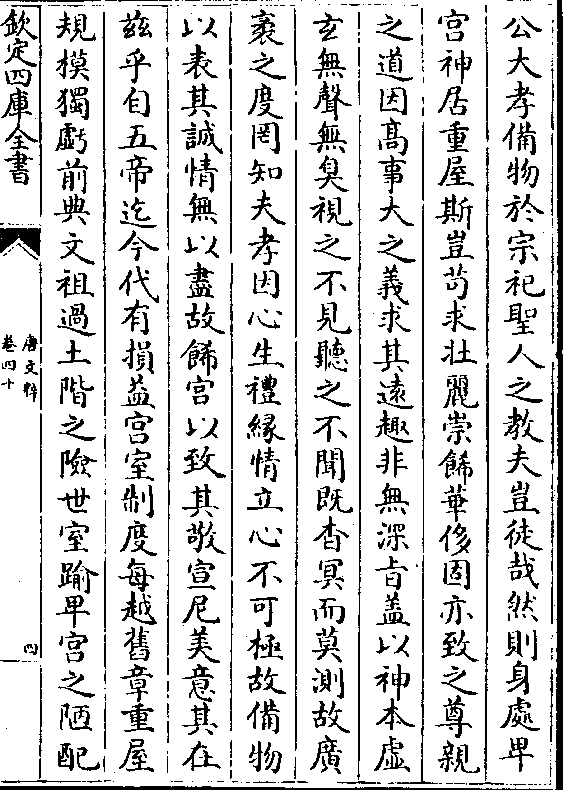 公大孝備物於宗祀聖人之教夫豈徒哉然則身處卑
宫神居重屋斯豈苟求壯麗崇餙華侈固亦致之尊親
之道因髙事大之義求其遠趣非無深㫖盖以神本虚
玄無聲無臭視之不見聽之不聞既杳冥而莫測故廣
袤之度罔知夫孝因心生禮縁情立心不可極故備物
以表其誠情無以盡故餙宫以致其敬宣尼美意其在
兹乎自五帝迄今代有損益宫室制度每越舊章重屋
規模獨虧前典文祖過土階之險世室踰卑宫之陋配
欽定四庫全書
唐文粹
卷四十
四